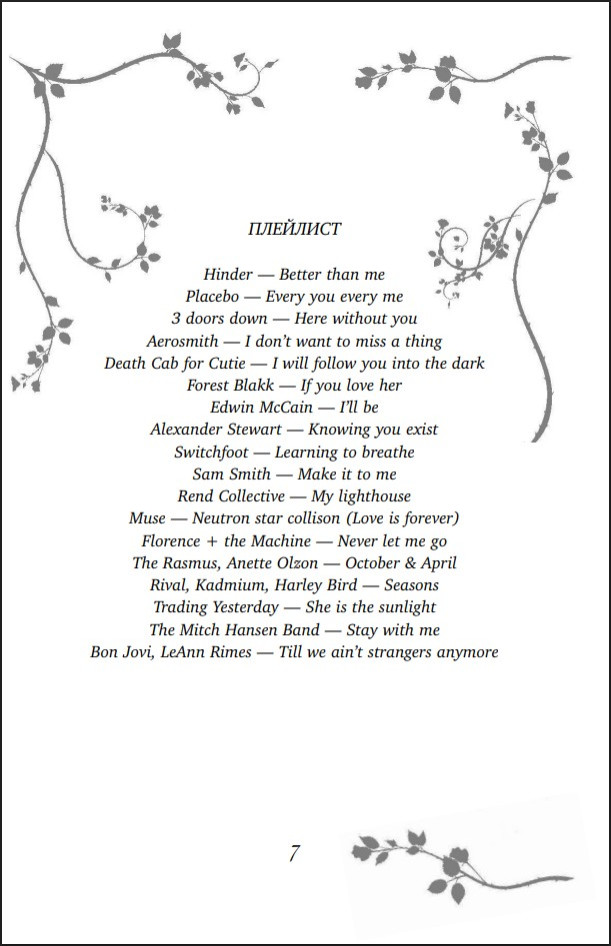 ПЛЕЙЛИСТ
Hinder — Better than me
Placebo — Every you every me
3 doors down — Here without you
Aerosmith — I don't want to miss a thing
Death Cab for Cutie — I will follow you into the dark
Forest Blakk — If you love her
Edwin McCain — I'll be
Alexander Stewart — Knowing you exist
Switchfoot — Learning to breathe
Sam Smith — Make it to me
Rend Collective — My lighthouse
Muse — Neutron star collison (Love is forever)
Florence + the Machine — Never let me go
The Rasmus, Anette Olzon — October & April
Rival, Kadmium, Harley Bird — Seasons
Trading Yesterday — She is the sunlight
The Mitch Hansen Band — Stay with me
Bon Jovi, LeAnn Rimes — Till we ain't strangers anymore
7